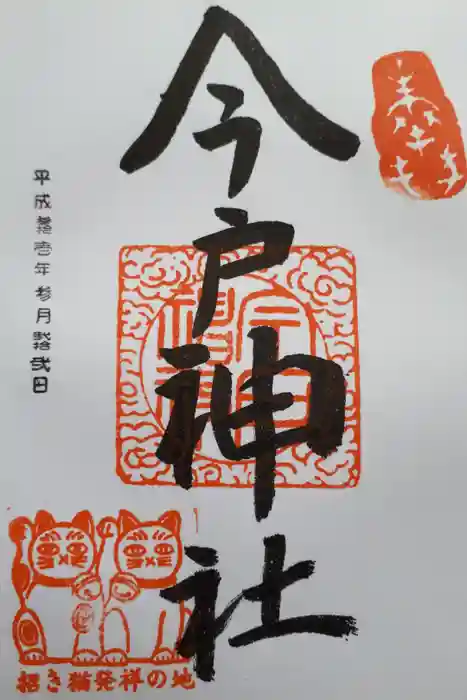 奉拝
今戸神社
平成参拾壱年参月拾弐日
招き猫発祥の地